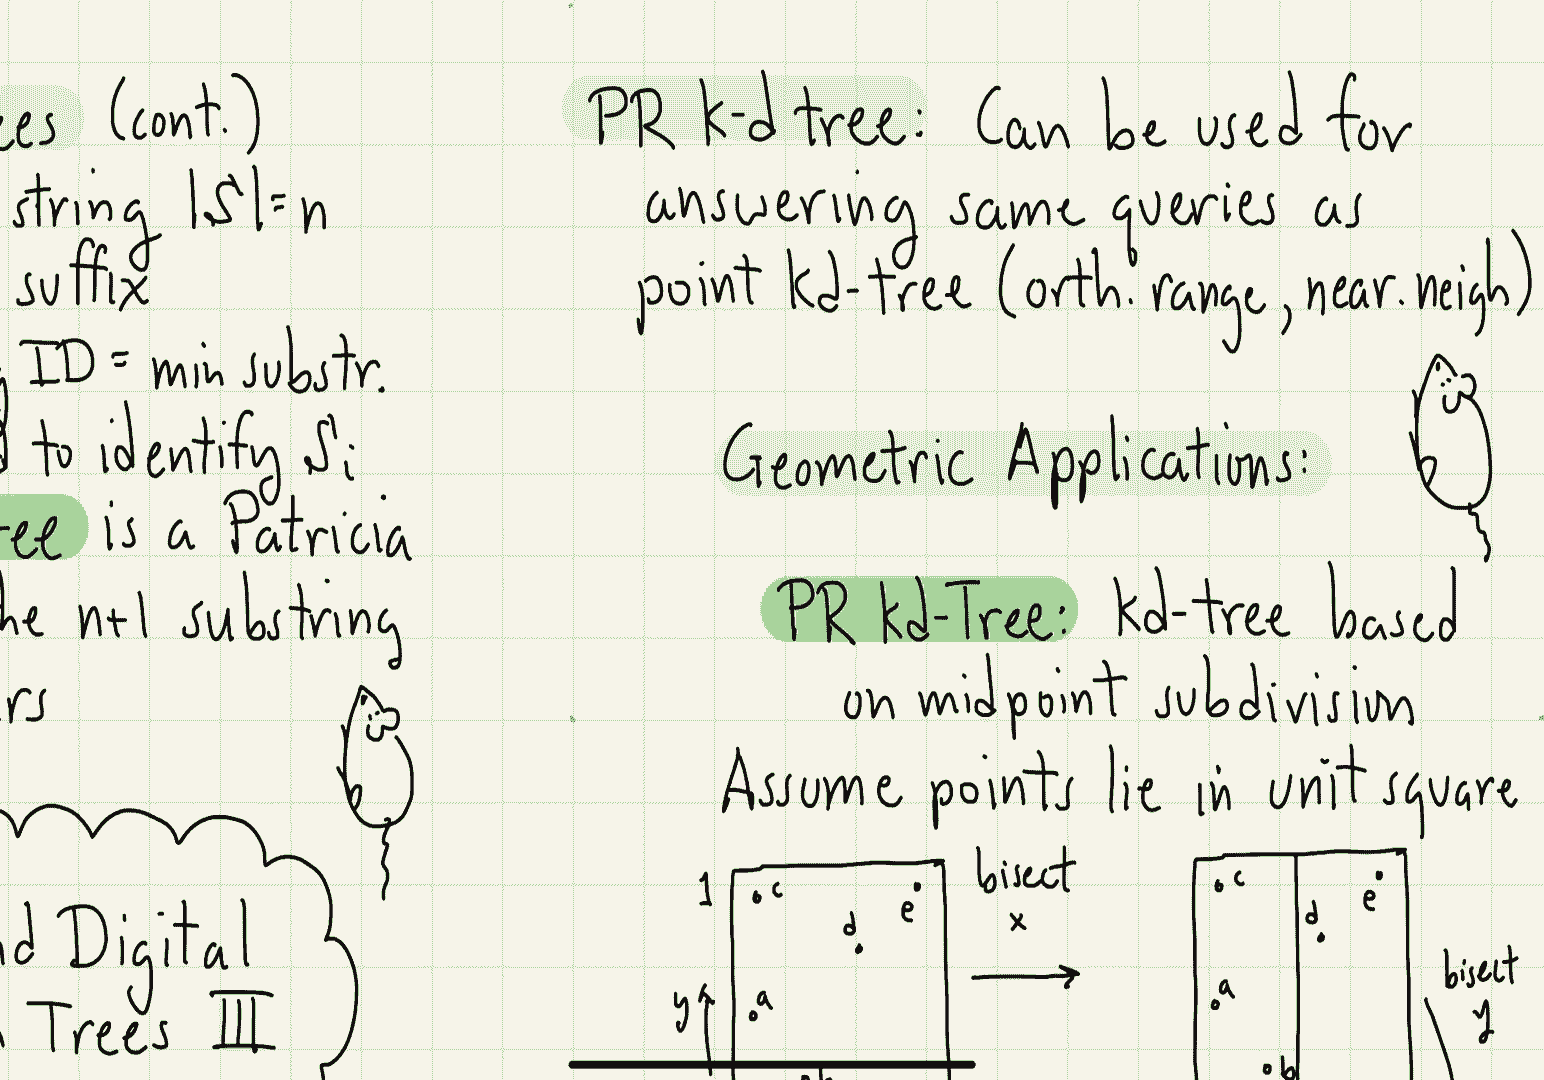 (cont.)
string |S|=n
suffix
ID = min substr.
to identify Si
is a Patricia
n+1 substring
Digital
Trees III
PR k-d tree: Can be used for
answering same queries as
point kd-tree (orth. range, near. neigh)
Geometric Applications:
PR kd-Tree: kd-tree based
on midpoint subdivision
Assume points lie in unit square
1
c
d
e
y
a
bisect
x
c
d
e
a
b
bisect
y